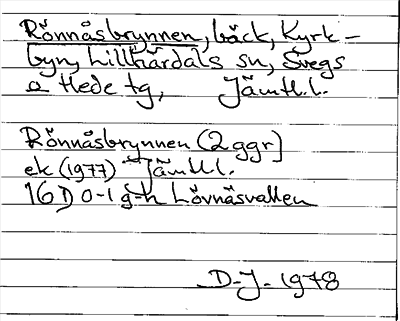 Rönnåsbrynnen, bäck, Kyrk-
byn, Lillhärdals sn, Svegs
o Hede tg, Jämtl.l.
Rönnåsbrynnen (2 ggr)
ek (1977) Jämtl.l.
16D 0-1 g-h Lövnäsvallen
D-J. 1978